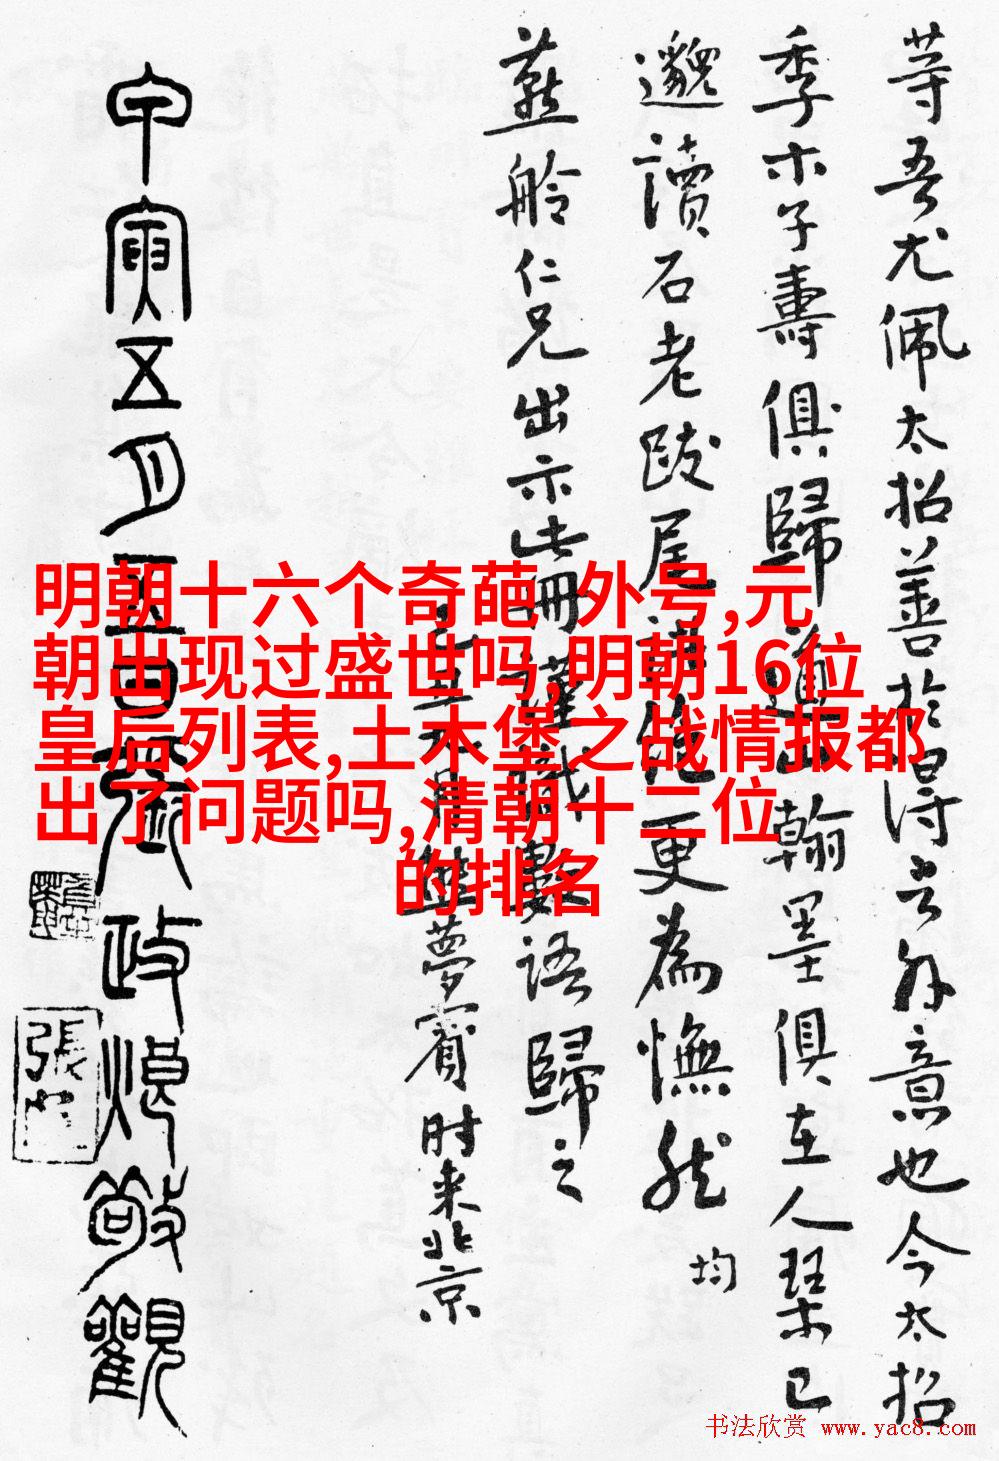 等吾尤佩太招善於得古外意也今太招
季木子壽俱歸道山翰墨俱在人琴已
邈讀石老跋尾誰能更為憮然 均
燕舲仁兄出示此冊謹識數語歸之
夢賓时来北京
甲寅五月 政烺敬觀
張
明朝十六个奇葩 外号,元
朝出现过盛世吗,明朝16位
皇后列表,土木堡之战情报都
出了问题吗,清朝十二位
的排名
书法欣赏 www.yac8.com